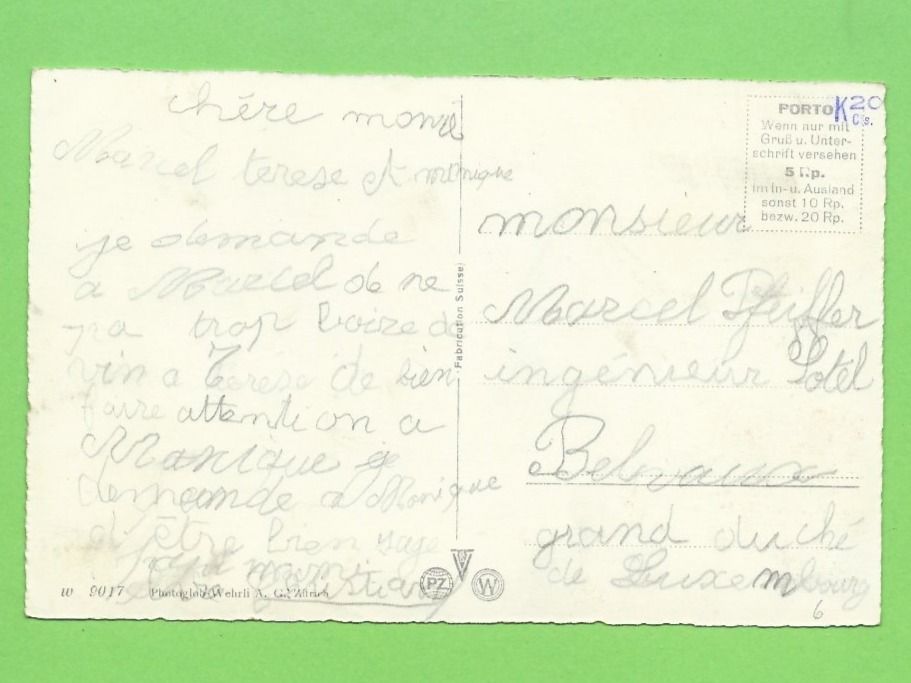 chère momie
Marcel terese et monique
je demande
a Marcel de ne
pa trop boire de
vin a Terese de bien
faire attention a
Monique je
demande a Monique
d'être bien sage
momi
Christian
w 9017 Photoglob-Wehrli A. G. Zürich
Fabrication Suisse
PZ
W
PORTO
Wenn nur mit
Gruß u. Unter-
schrift versehen
5 Rp.
im In- u. Ausland
sonst 10 Rp.
bezw. 20 Rp.
K 20
Cts.
monsieur
Marcel Pfeiffer
ingénieur Sotel
Belvaux
grand duché
de Luxembourg
6